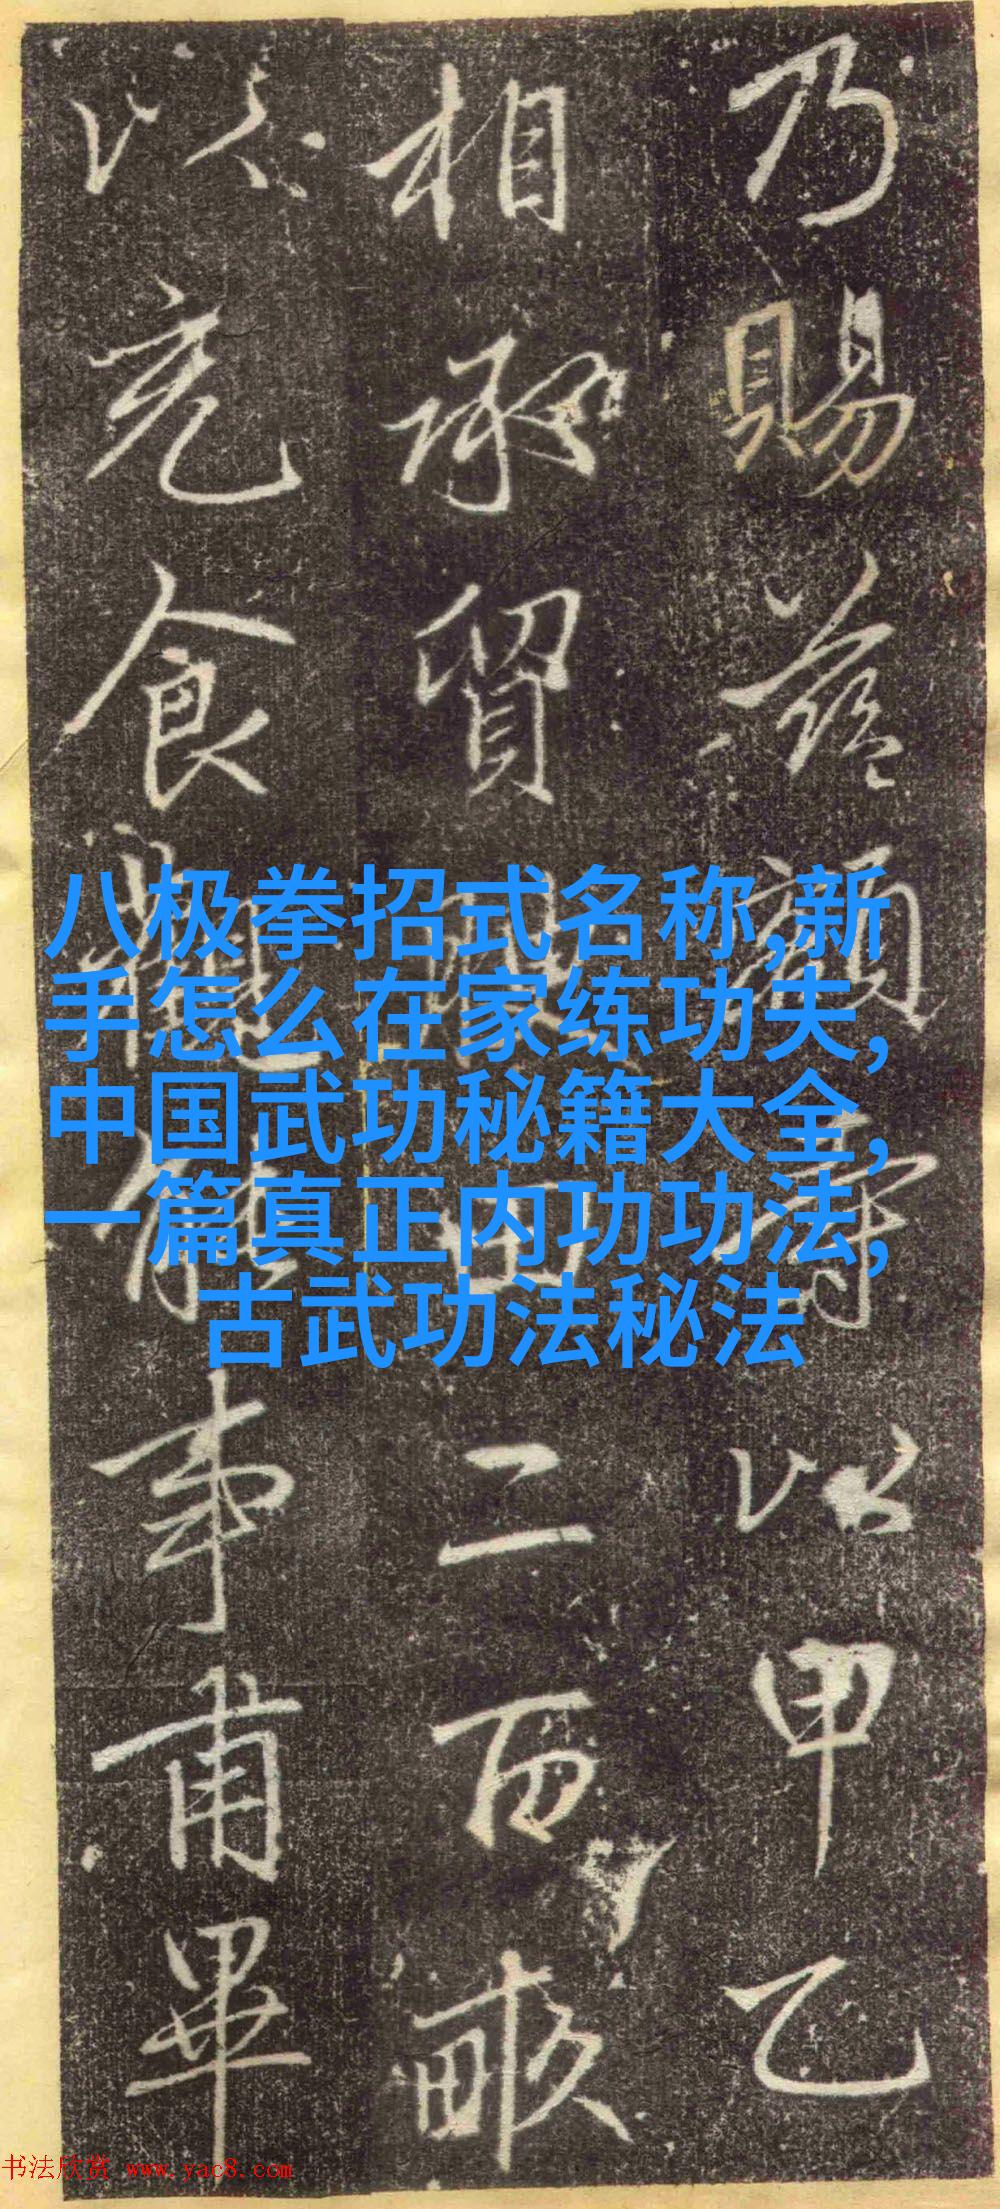 乃賜額寺以甲乙
相承買田二百畝
以充食能事甫畢
八极拳招式名称,新
手怎么在家练功夫,
中国武功秘籍大全,
一篇真正内功功法,
古武功法秘法
书法欣赏 www.yac8.com